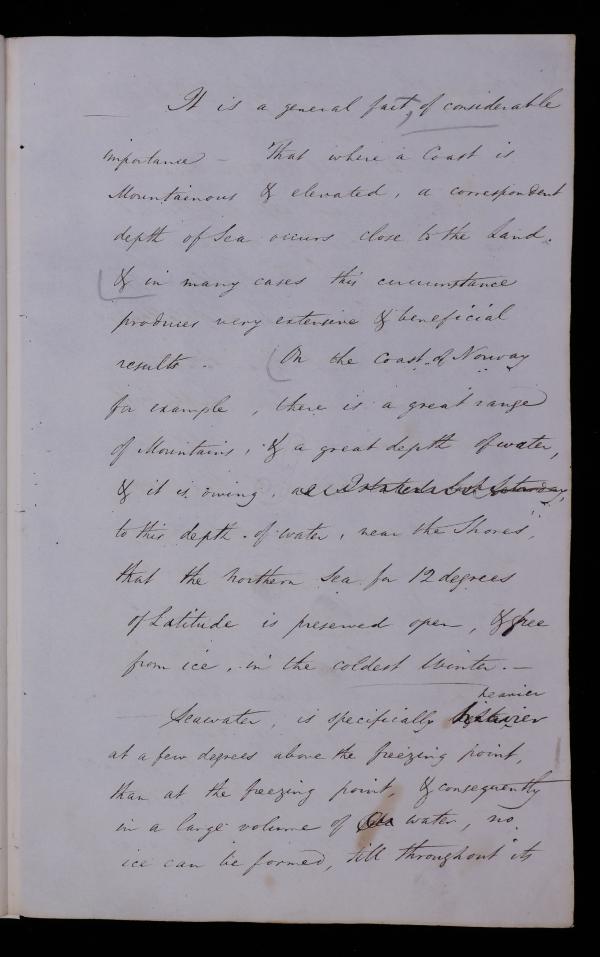 It is a general fact, of considerable
importance - That where a Coast is
Mountainous & elevated, a correspondent
depth of Sea occurs close to the Land.
& in many cases this circumstance
produces very extensive & beneficial
results. On the Coast of Norway
for example, there is a great range
of Mountains, & a great depth of water,
& it is owing, as I stated last Saturday,
to this depth of water, near the Shores,
that the Northern Sea for 12 degrees
of Latitude is preserved open, & free
from ice, in the coldest Winter. -
heavier
Seawater, is specifically
at a few degrees above the freezing point,
than at the freezing point, & consequently
in a large volume of water, no
ice can be formed, till throughout its